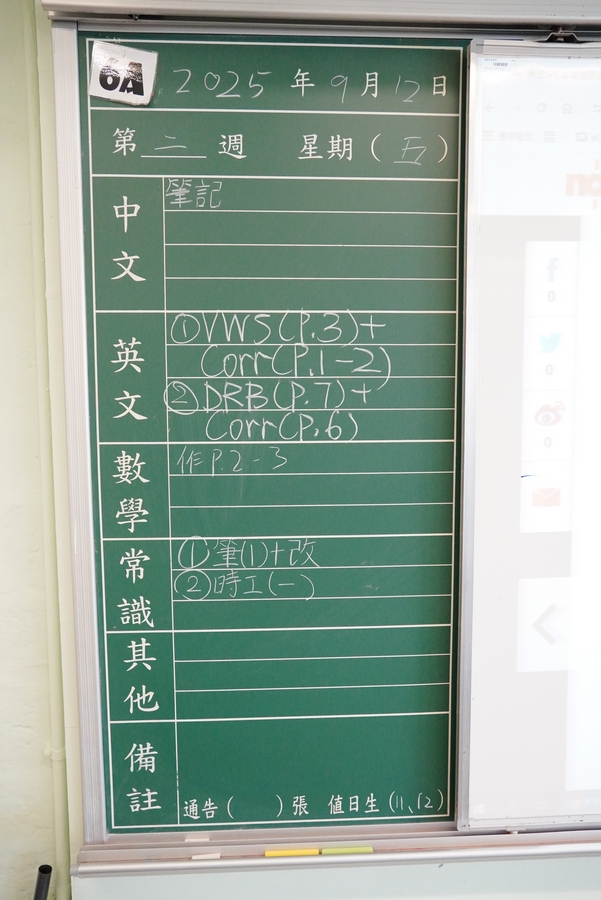 6A
2025 年 9 月 12 日
第 二 週 星期 ( 五 )
中文
筆記
英文
①VWS(P.3)+
Corr(P.1-2)
②DRB(P.7)+
Corr(P.6)
數學
作P.2-3
常識
①筆(1)+改
②時工(一)
其他
備註
通告( )張 值日生(11、12)
0
0
0